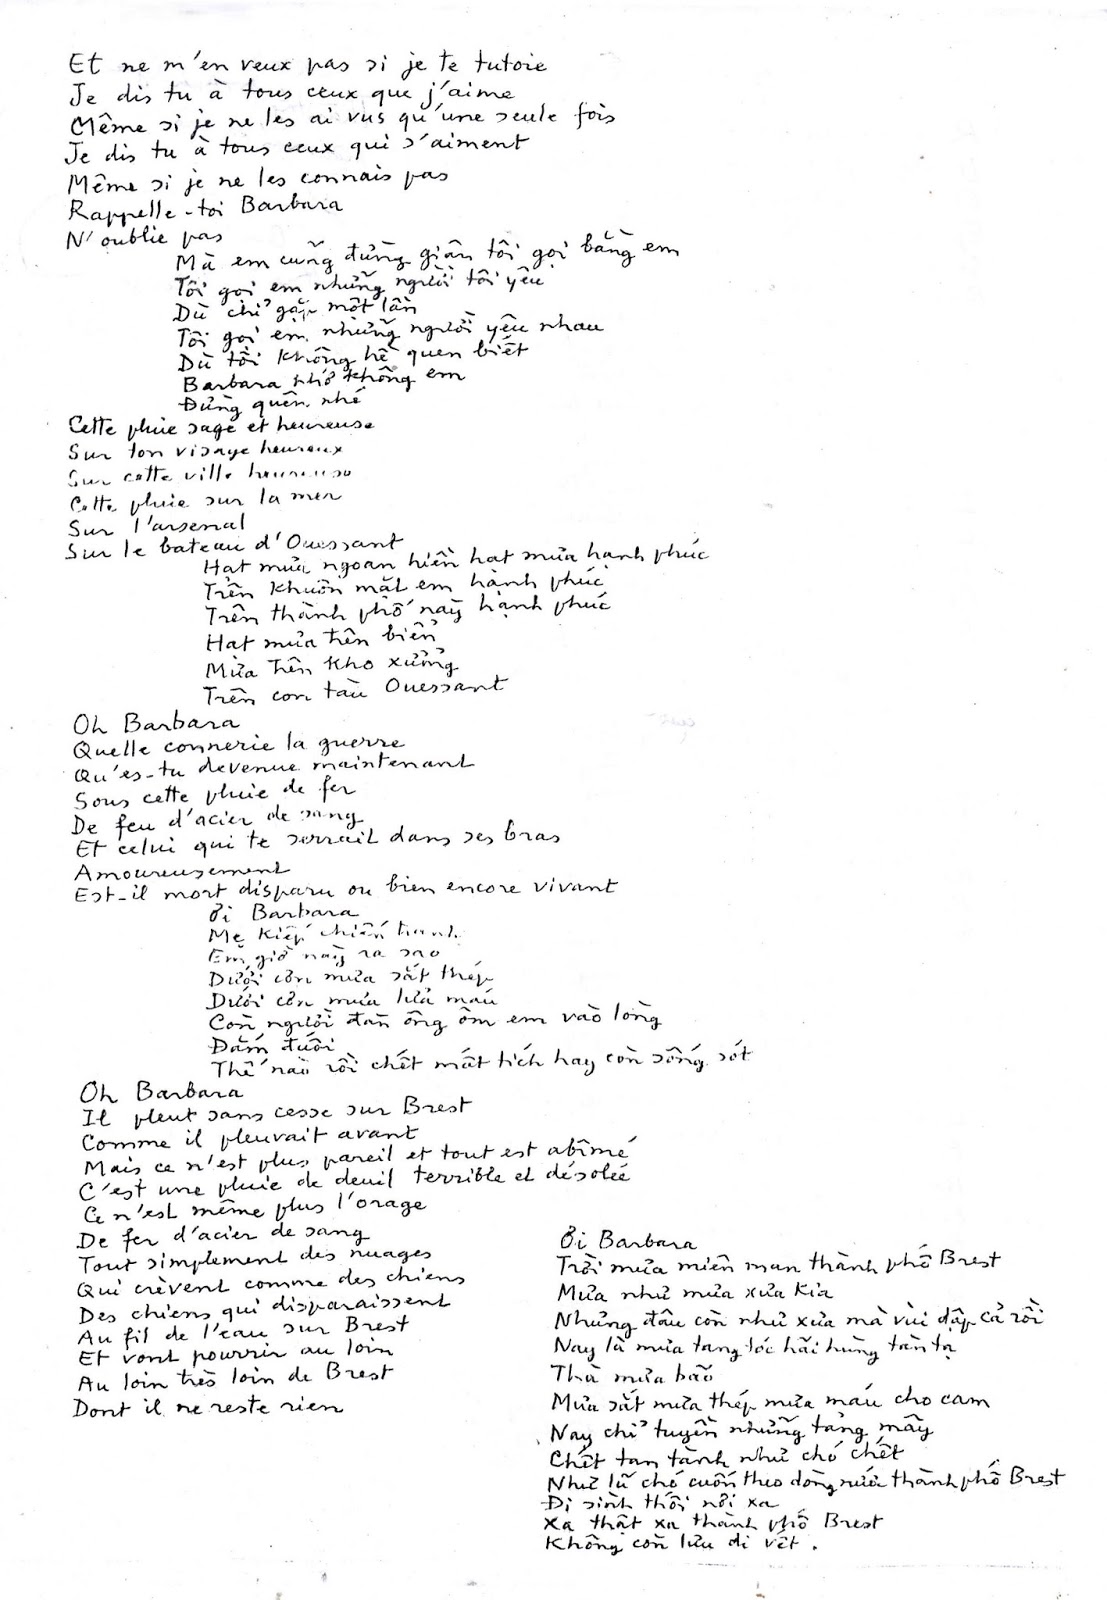 Et ne m'en veux pas si je te tutoie
Je dis tu à tous ceux que j'aime
Même si je ne les ai vus qu'une seule fois
Je dis tu à tous ceux qui s'aiment
Même si je ne les connais pas
Rappelle-toi Barbara
N'oublie pas
Mà em cũng đừng giận tôi gọi bằng em
Tôi gọi em những người tôi yêu
Dù chỉ gặp một lần
Tôi gọi em những người yêu nhau
Dù tôi không hề quen biết
Barbara nhớ không em
Đừng quên nhé
Cette pluie sage et heureuse
Sur ton visage heureux
Sur cette ville heureuse
Cette pluie sur la mer
Sur l'arsenal
Sur le bateau d'Ouessant
Hạt mưa ngoan hiền hạt mưa hạnh phúc
Trên khuôn mặt em hạnh phúc
Trên thành phố này hạnh phúc
Hạt mưa trên biển
Mưa trên kho xưởng
Trên con tàu Ouessant
Oh Barbara
Quelle connerie la guerre
Qu'es-tu devenue maintenant
Sous cette pluie de fer
De feu d'acier de sang
Et celui qui te serrait dans ses bras
Amoureusement
Est-il mort disparu ou bien encore vivant
Ơi Barbara
Mẹ kiếp chiến tranh
Em giờ này ra sao
Dưới cơn mưa sắt thép
Dưới cơn mưa lửa máu
Còn người đàn ông ôm em vào lòng
Đắm đuối
Thế nào rồi chết mất tích hay còn sống sót
Oh Barbara
Il pleut sans cesse sur Brest
Comme il pleuvait avant
Mais ce n'est plus pareil et tout est abîmé
C'est une pluie de deuil terrible et désolée
Ce n'est même plus l'orage
De fer d'acier de sang
Tout simplement des nuages
Qui crèvent comme des chiens
Des chiens qui disparaissent
Au fil de l'eau sur Brest
Et vont pourrir au loin
Au loin très loin de Brest
Dont il ne reste rien
Ơi Barbara
Trời mưa miên man thành phố Brest
Mưa như mưa xưa kia
Nhưng đâu còn như xưa mà vùi dập cả rồi
Nay là mưa tang tóc hãi hùng tàn tạ
Thà mưa bão
Mưa sắt mưa thép mưa máu cho cam
Nay chỉ tuyền những tảng mây
Chết tan tành như chó chết
Như lũ chó cuốn theo dòng nước thành phố Brest
Đi sình thối nơi xa
Xa thật xa thành phố Brest
Không còn lưu di vết.